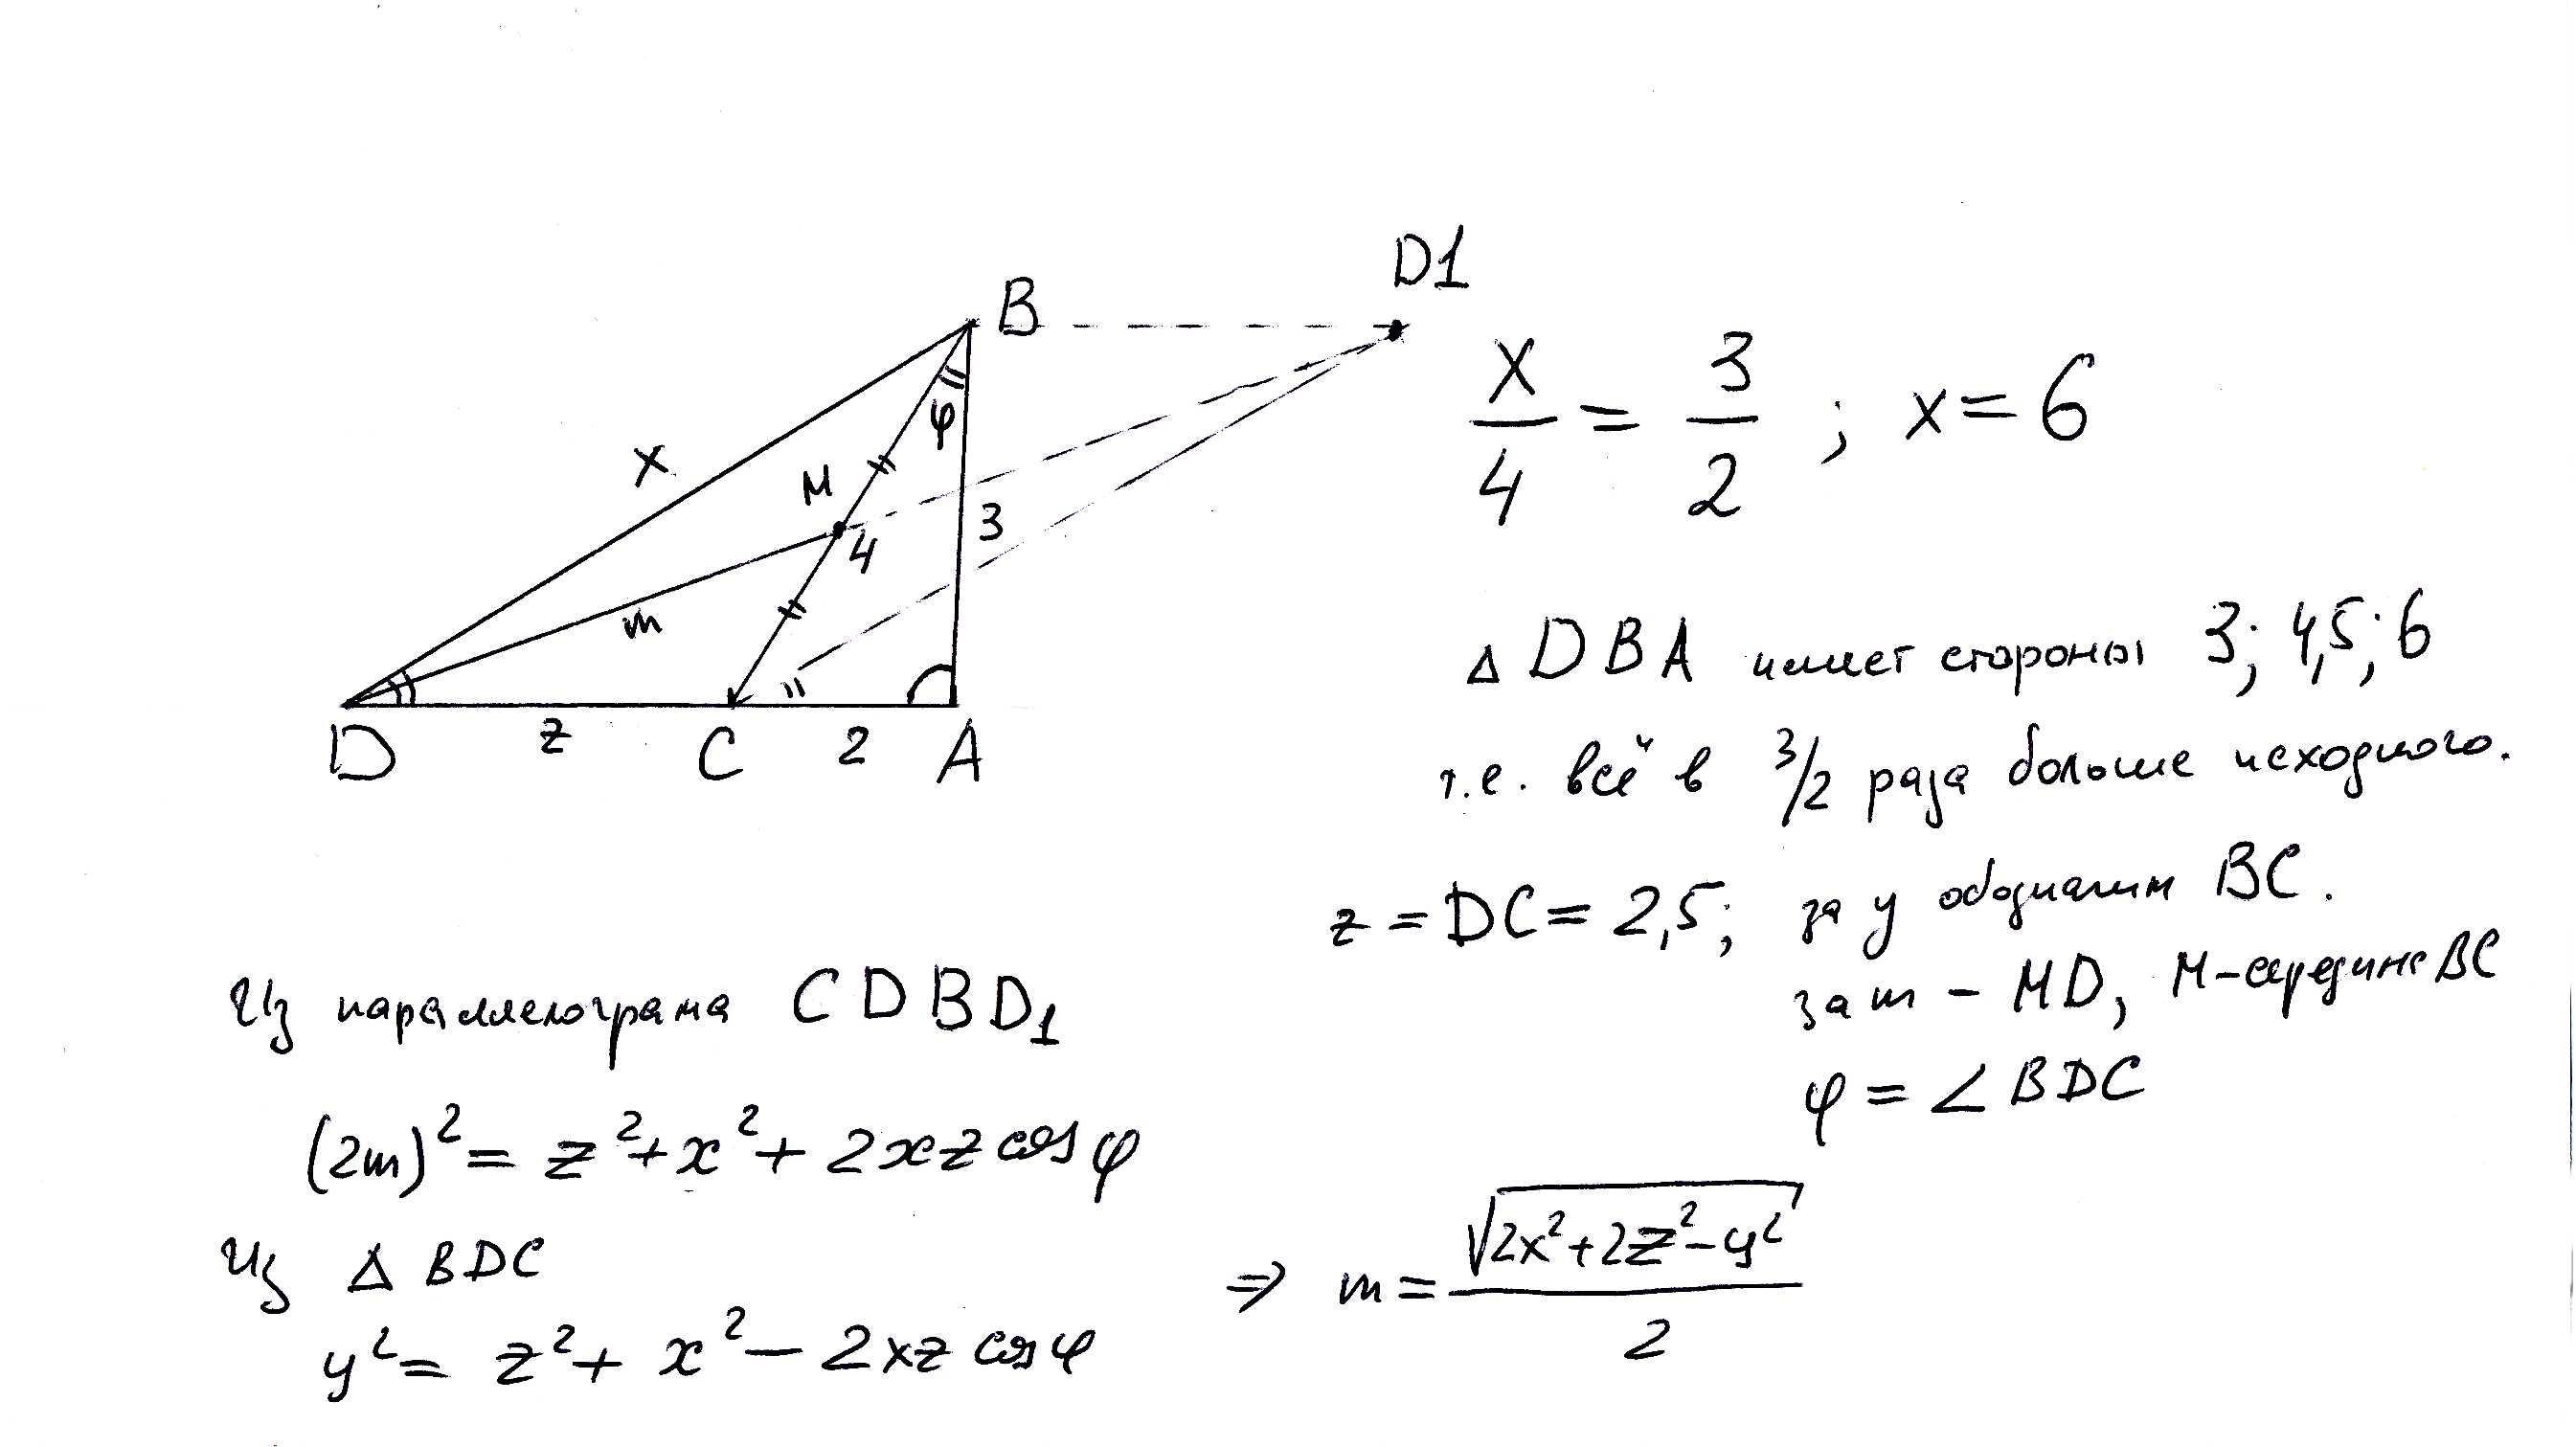 D1
B
φ
x
M
4
3
m
D
z
C
2
A
x/4 = 3/2 ; x = 6
Δ DBA имеет стороны 3; 4,5; 6
т.е. всё в 3/2 раза больше исходного.
z = DC = 2,5; за y обозначим BC.
за m – MD, M – середина BC
φ = ∠ BDC
Из параллелограма CDBD₁
(2m)² = z² + x² + 2xz cos φ
Из Δ BDC
y² = z² + x² – 2xz cos φ
⇒ m = √(2x² + 2z² – y²) / 2